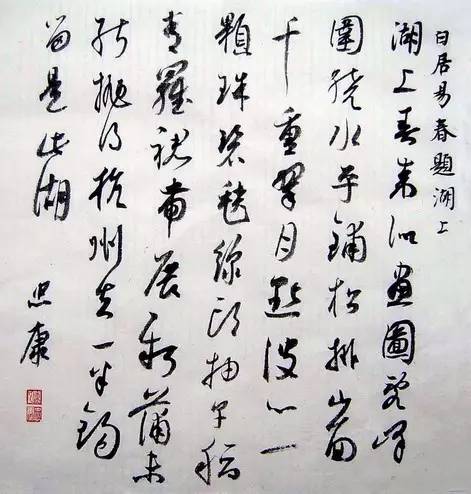 白居易春題湖上
湖上春来似畫圖乱峰
圍繞水平鋪松排山面
千重翠月點波心一
顆珠碧毯線头抽早稻
青羅裙帶展新蒲未
能抛得杭州去一半鈎
留是此湖
康